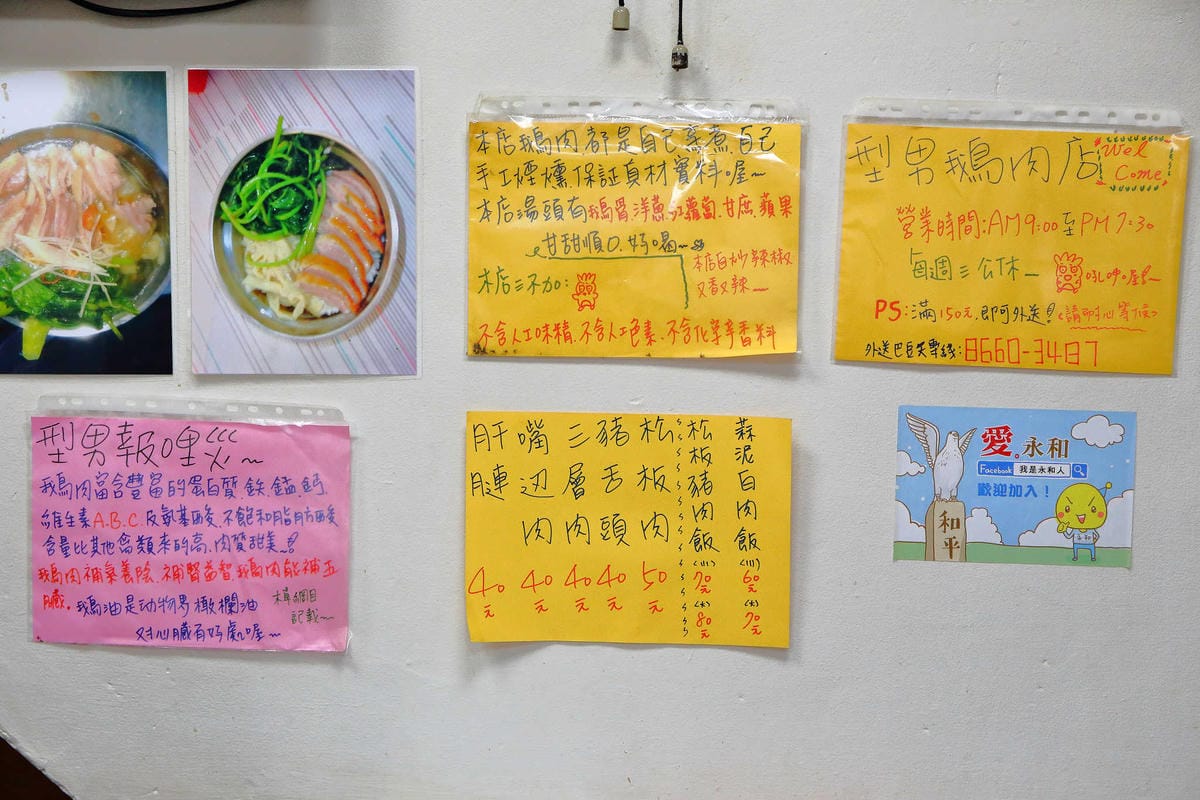 本店鵝肉都是自己烹煮.自己
手工煙燻.保証真材實料喔~
本店湯頭有鵝骨.洋蔥.紅蘿蔔.甘庶.蘋果
甘甜順口.好喝~
本店三不加:
本店自炒辣椒
又香又辣~
不含人工味精.不含人工色素.不含化學辛香料
型男鵝肉店
Wel
Come
營業時間:AM9:00至PM7:30
每週三公休~
PS:滿150元.即可外送!(請耐心等候)
外送巴豆笑專線:8660-3487
型男報哩災~
鵝肉富含豐富的蛋白質.鉄.錳.鈣.
維生素A.B.C.及氨基酸.不飽和脂肪酸
含量比其他禽類來的高.肉質甜美~!
鵝肉補氣養陰.補腎益智.鵝肉能補五
臟.鵝油是动物界橄欖油
本草綱目
記載~
对心臟有好處喔~
肝腱 40元
嘴边肉 40元
三層肉 40元
豬舌頭 40元
松板肉 50元
松板豬肉飯 (小)70元 (大)80元
蒜泥白肉飯 (小)60元 (大)70元
愛。永和
Facebook 我是永和人
歡迎加入！
和平
永和